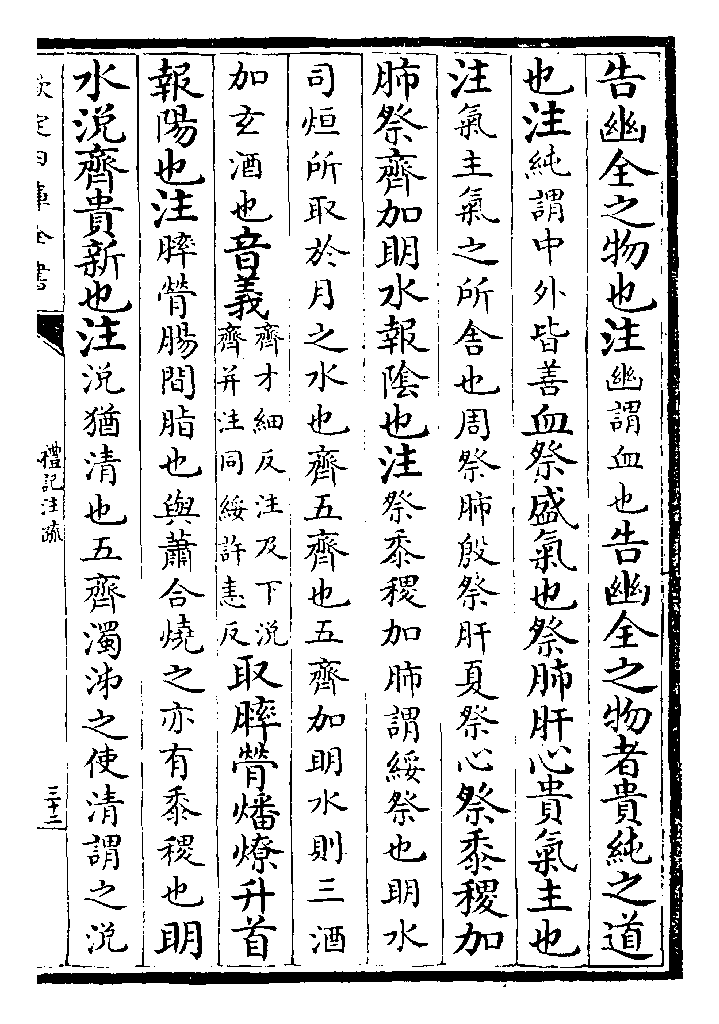 告幽全之物也注幽謂血也告幽全之物者貴純之道
也注純謂中外皆善血祭盛氣也祭肺肝心貴氣主也
注氣主氣之所舍也周祭肺殷祭肝夏祭心祭黍稷加
肺祭齊加明水報隂也注祭黍稷加肺謂綏祭也明水
司烜所取於月之水也齊五齊也五齊加明水則三酒
加玄酒也音義齊才細反注及下說齊并注同綏許恚反取膟膋燔燎升首
報陽也注膟膋腸間脂也與蕭合燒之亦有黍稷也明
水涚齊貴新也注涚猶清也五齊濁泲之使清謂之涚
欽定四庫全書
禮記注疏
三十二